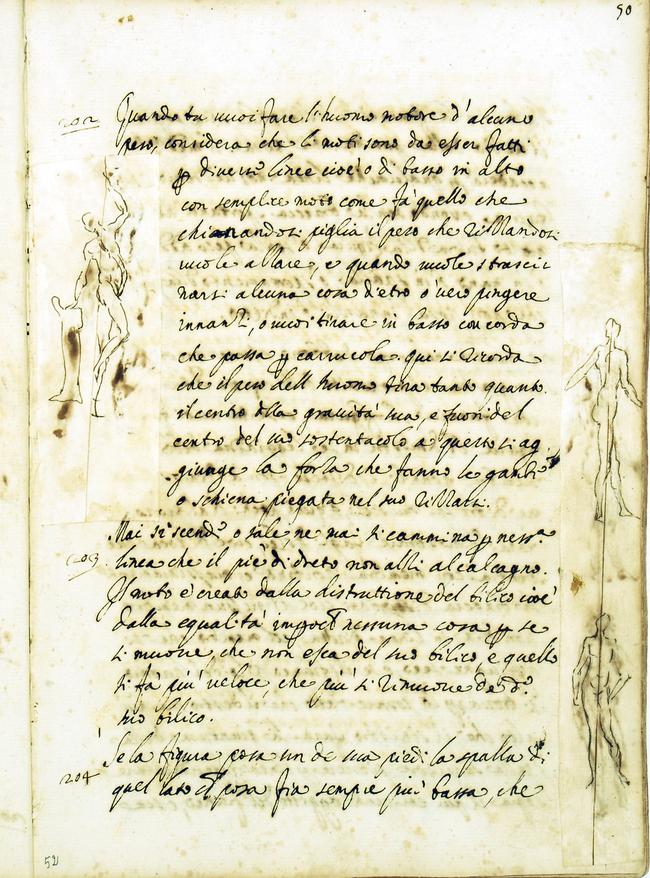 50
202 Quando tu uuoi fare l'huomo motore d'alcuno
peso, considera che li moti sono da esser fatti
p diverse linee cioè o di basso in alto
con semplice moto come fà quello che
chinandosi piglia il peso che rizzandosi
uuole alzare, e quando uuole strasci
narsi alcuna cosa dietro o uero pingere
innanzi, o uuoi tirare in basso con corda
che passa p carrucola. qui si ricorda
che il peso dell huomo tira tanto quanto
il centro della gravità sua, e fuori del
centro del suo sostentacolo a questo si ag
giunge la forza che fanno le gambe
o schiena piegata nel suo rizzarsi.
Mai si scende o sale, ne mai si cammina p ness.a
203 linea che il piè di dreto non alzi al calcagno.
Il moto è creato dalla distruttione del bilico cioè
dalla equalità nessuna cosa p se
si muoue, che non esca del suo bilico, e quello
si fà più ueloce, che più si rimuoue da d.o
suo bilico.
Se la figura posa un de sua piedi la spalla di
204 quel lato posa fia sempre più bassa, che
52